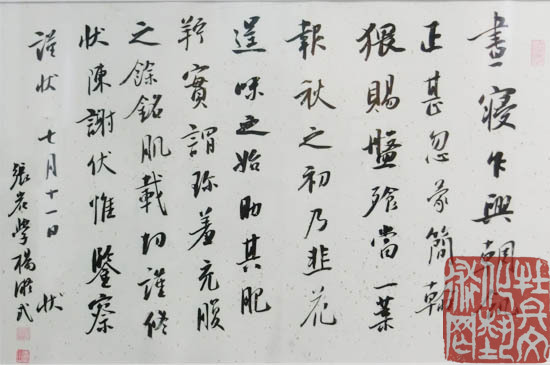 晝寢乍興
正甚忽蒙簡翰
猥賜盤飧當一葉
報秋之初乃韭花
逞味之始助其肥
羜實謂珍羞充腹
之餘銘肌載切謹修
狀陳謝伏惟鑒察
謹狀 七月十一日 狀
張 學楊凝式